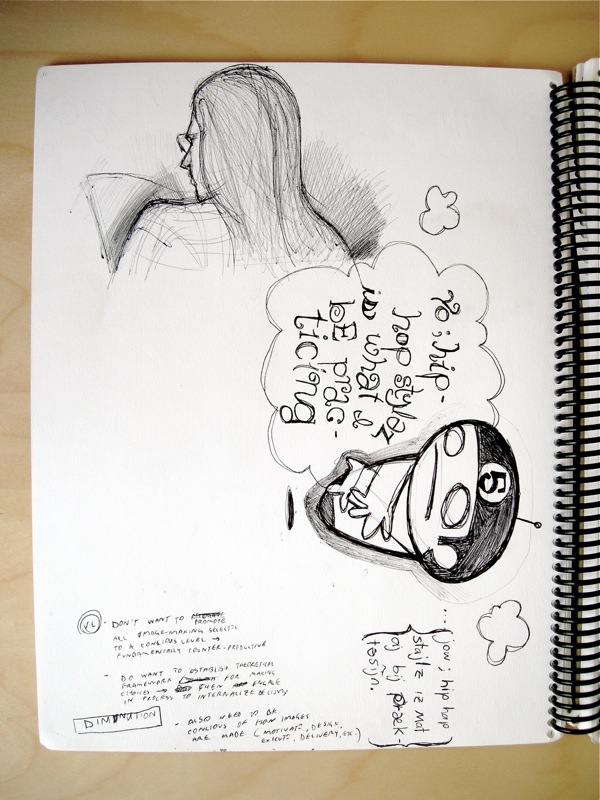 Yo; hip-
hop stylez
is what I
bE prac-
ticing
5
...jow; hip hap
stajlz iz wat
aj bij præk-
tesijn.
VL
- DON'T WANT TO PROMOTE
ALL IMAGE-MAKING SELECTS
TO A CONCIOUS LEVEL →
FUNDAMENTALLY COUNTER-PRODUCTIVE
- DO WANT TO ESTABLISH THEORETICAL
FRAMEWORK FOR MAKING
CHOICES → THEN ENGAGE
IN PROCESS TO INTERNALIZE DECISIONS
DIMINUTION
- ALSO NEED TO BE
CONCIOUS OF HOW IMAGES
ARE MADE (MOTIVATE, DESIGN,
EXECUTE, DELIVERY, EX.)